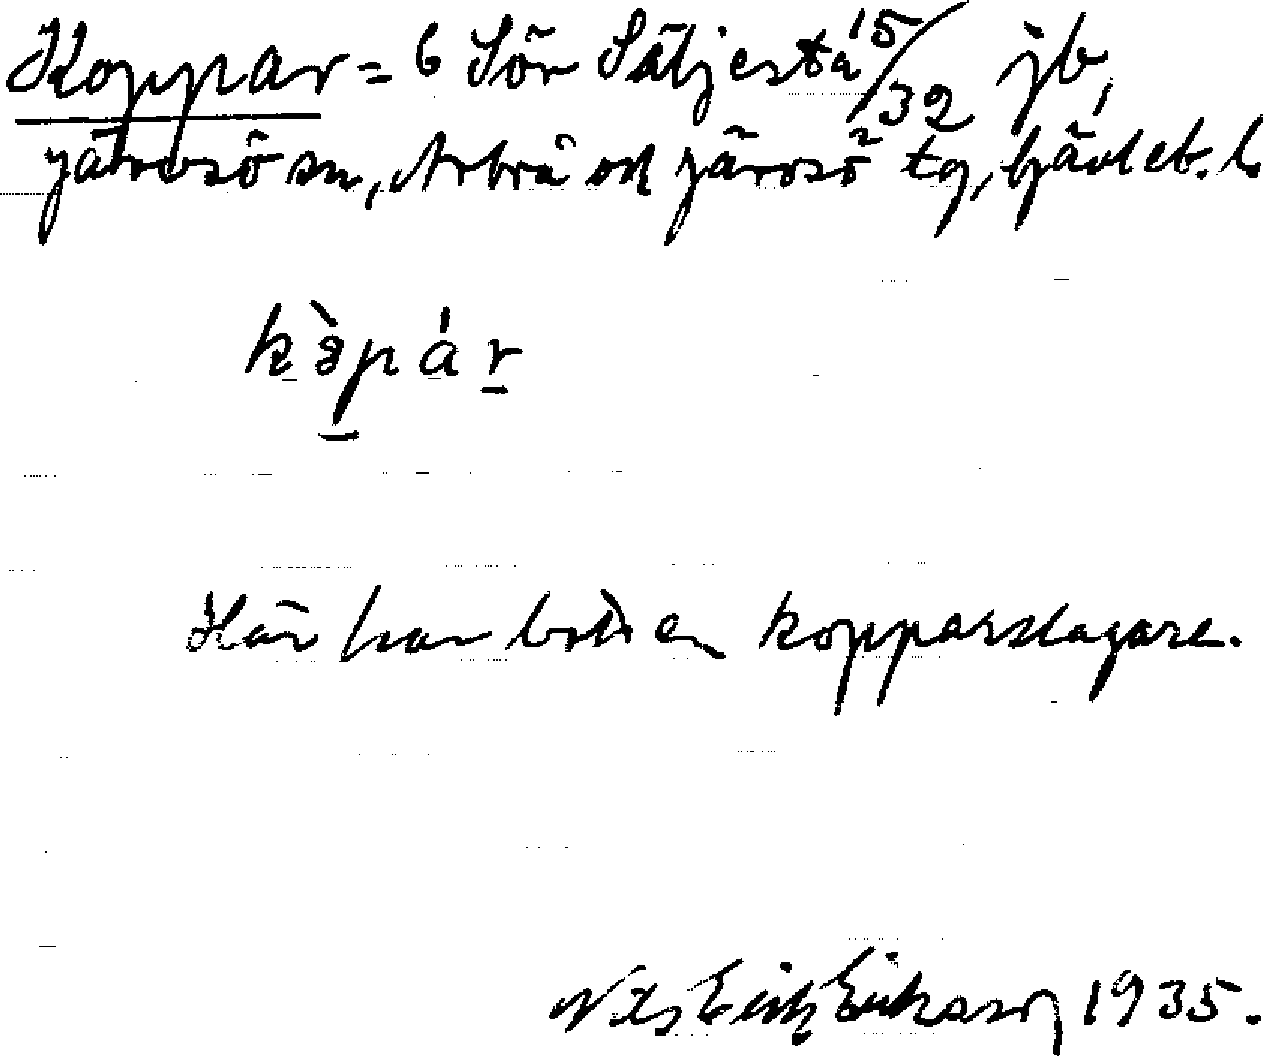 Koppar = 6 Sör Säljesta 15/32 jb,
Järvsö sn, Arbrå och Järvsö tg, Gävleb. l.
kòpár
Här har bott en kopparslagare.
Nils Erik Eriksson 1935.